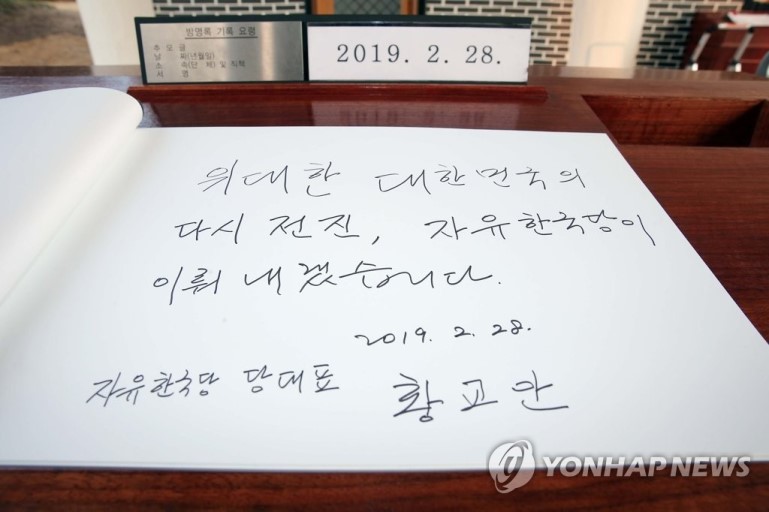 방명록 기록 요령
추 모 글
날 짜(년월일)
소 속(단 체) 및 직책
서 명
2019. 2. 28.
위대한 대한민국의
다시 전진, 자유한국당이
이뤄 내겠습니다.
2019. 2. 28.
자유한국당 당대표 황교안
YONHAP NEWS